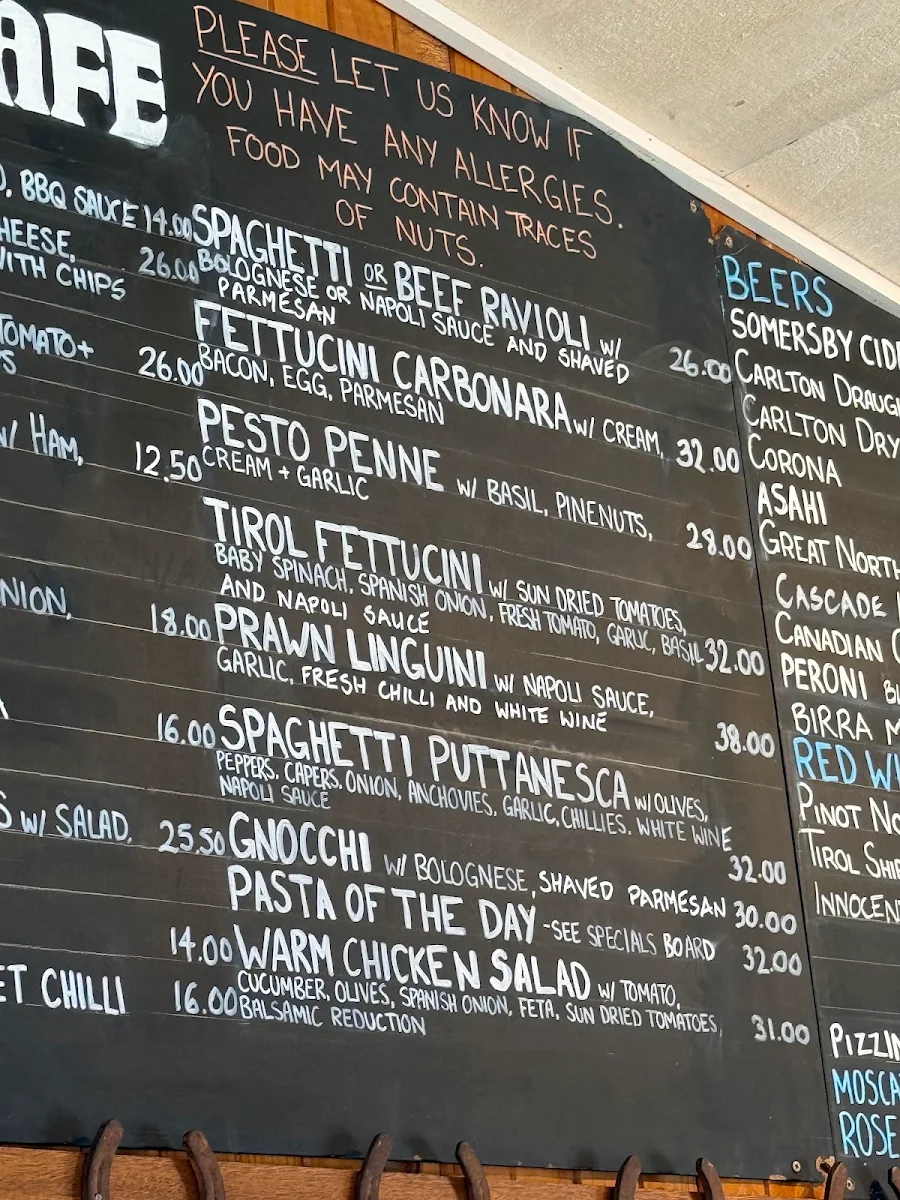 AFE
PLEASE LET US KNOW IF
YOU HAVE ANY ALLERGIES.
FOOD MAY CONTAIN TRACES
OF NUTS.
BBQ SAUCE 14.00
26.00
WITH CHIPS
TOMATO+
26.00
w/ HAM,
12.50
18.00
16.00
w/ SALAD, 25.50
14.00
CHILLI 16.00
SPAGHETTI OR BEEF RAVIOLI w/
BOLOGNESE OR NAPOLI SAUCE AND SHAVED
PARMESAN 26.00
FETTUCINI CARBONARA w/ CREAM,
BACON, EGG, PARMESAN 32.00
PESTO PENNE w/ BASIL, PINENUTS,
CREAM + GARLIC 28.00
TIROL FETTUCINI w/ SUN DRIED TOMATOES,
BABY SPINACH, SPANISH ONION, FRESH TOMATO, GARLIC, BASIL 32.00
AND NAPOLI SAUCE
PRAWN LINGUINI w/ NAPOLI SAUCE,
GARLIC, FRESH CHILLI AND WHITE WINE 38.00
SPAGHETTI PUTTANESCA w/ OLIVES,
PEPPERS, CAPERS, ONION, ANCHOVIES, GARLIC, CHILLIES, WHITE WINE
NAPOLI SAUCE 32.00
GNOCCHI w/ BOLOGNESE, SHAVED PARMESAN 30.00
PASTA OF THE DAY -SEE SPECIALS BOARD 32.00
WARM CHICKEN SALAD w/ TOMATO,
CUCUMBER, OLIVES, SPANISH ONION, FETA, SUN DRIED TOMATOES,
BALSAMIC REDUCTION 31.00
BEERS
SOMERSBY CID
CARLTON DRAUG
CARLTON DRY
CORONA
ASAHI
GREAT NORTH
CASCADE
CANADIAN
PERONI
BIRRA M
RED WI
PINOT NO
TIROL SHI
INNOCEN
PIZZIN
MOSCA
ROSE